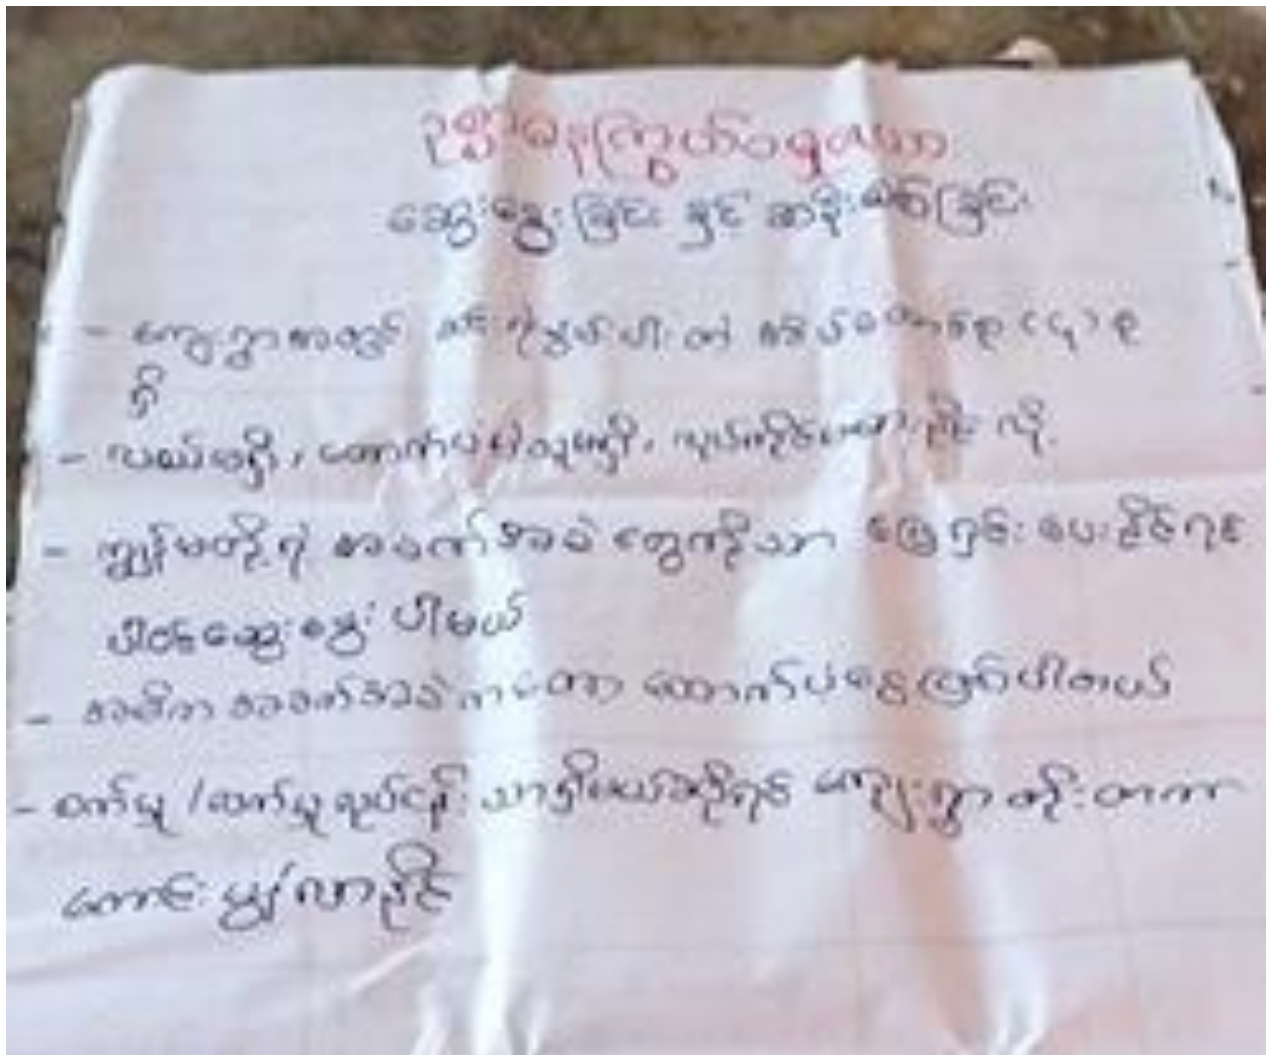 ဥစ္စာဓနကြွယ်ဝရှုထောင့်
ဆွေးနွေးခြင်း နှင့် ဆာမိုးမိတ်ခြင်း
- ကျေးရွာအတွင် ဆင်းရဲနွမ်းပါး တဲ့ အိမ်ထောင်စု (၄) စု
ရှိ
- လယ်မရှိ၊ ထောက်ပံ့မဲ့သူမရှိ၊ လုပ်ကိုင်မစား နိုင် လို့
- ကျွန်မတို့ရဲ့ အခက်အခဲ တွေကိုသာ ဖြေရှင်း ပေး နိုင်ရင်
ပါဝင်ဆွေးနွေး ပါမယ်
- အဓိက အခက်အခဲ ကတော့ ထောက်ပံ့ငွေ ဖြစ်ပါတယ်
- စက်မှု / လက်မှု လုပ်ငန်း သာရှိမယ်ဆိုရင် ကျေးရွာ စီးတကာ
ကောင်း မွန်လာနိုင်